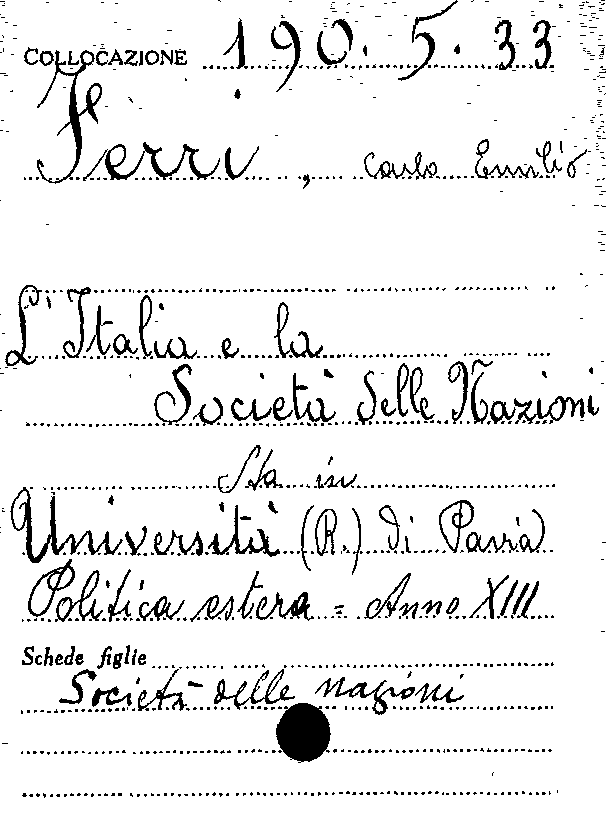 COLLOCAZIONE 190.5.33
Ferri, Carlo Emilio
L'Italia e la
Società delle Nazioni
Sta in
Università (R.) di Pavia
Politica estera = Anno XIII
Schede figlie
Società delle nazioni